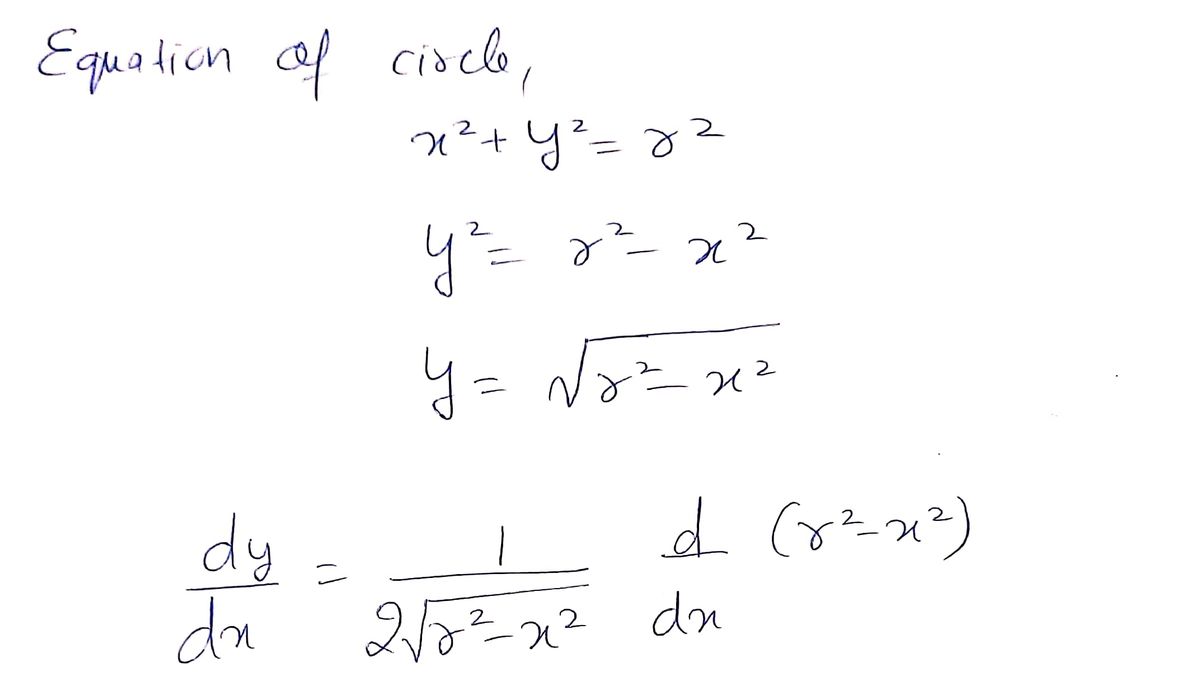 Equation of circle,
x² + y² = r²
y² = r² - x²
y = √(r² - x²)
dy/dx = 1/(2√(r² - x²)) d/dx (r² - x²)